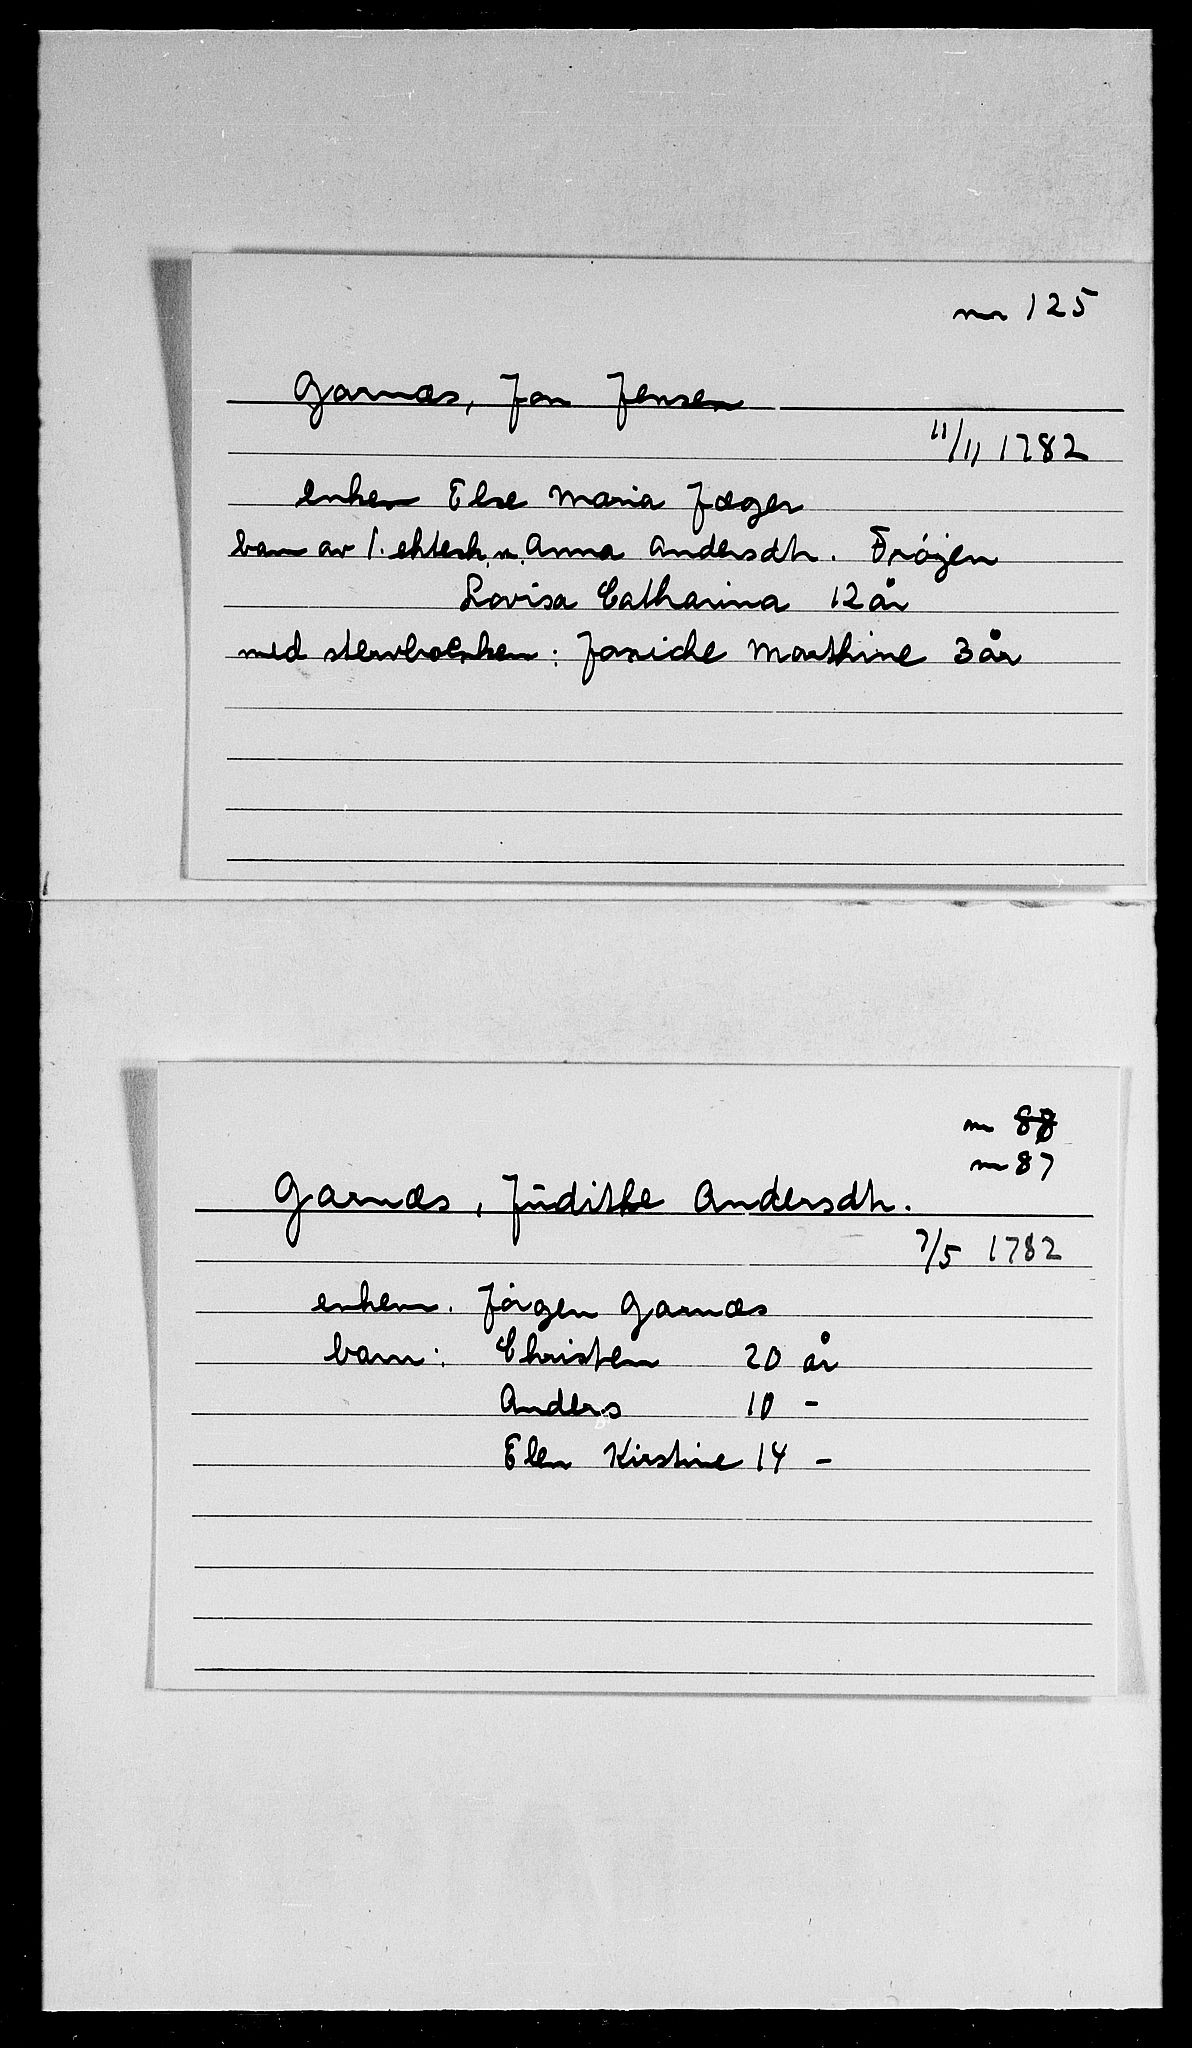 nr 125
Garnæs, Jon Jensen
11/11 1782
enken Else Maria Jæger
barn av 1. ektesk. m. Anna Andersdtr. Frøjen
Lovisa Catharina 12 år
med stervboenken: Janiche Marthine 3 år
nr 88
nr 87
Garnæs, Judithe Andersdtr.
7/5 1782
enkem. Jörgen Garnæs
barn: Christen 20 år
Anders 10 -
Elen Kirstine 14 -